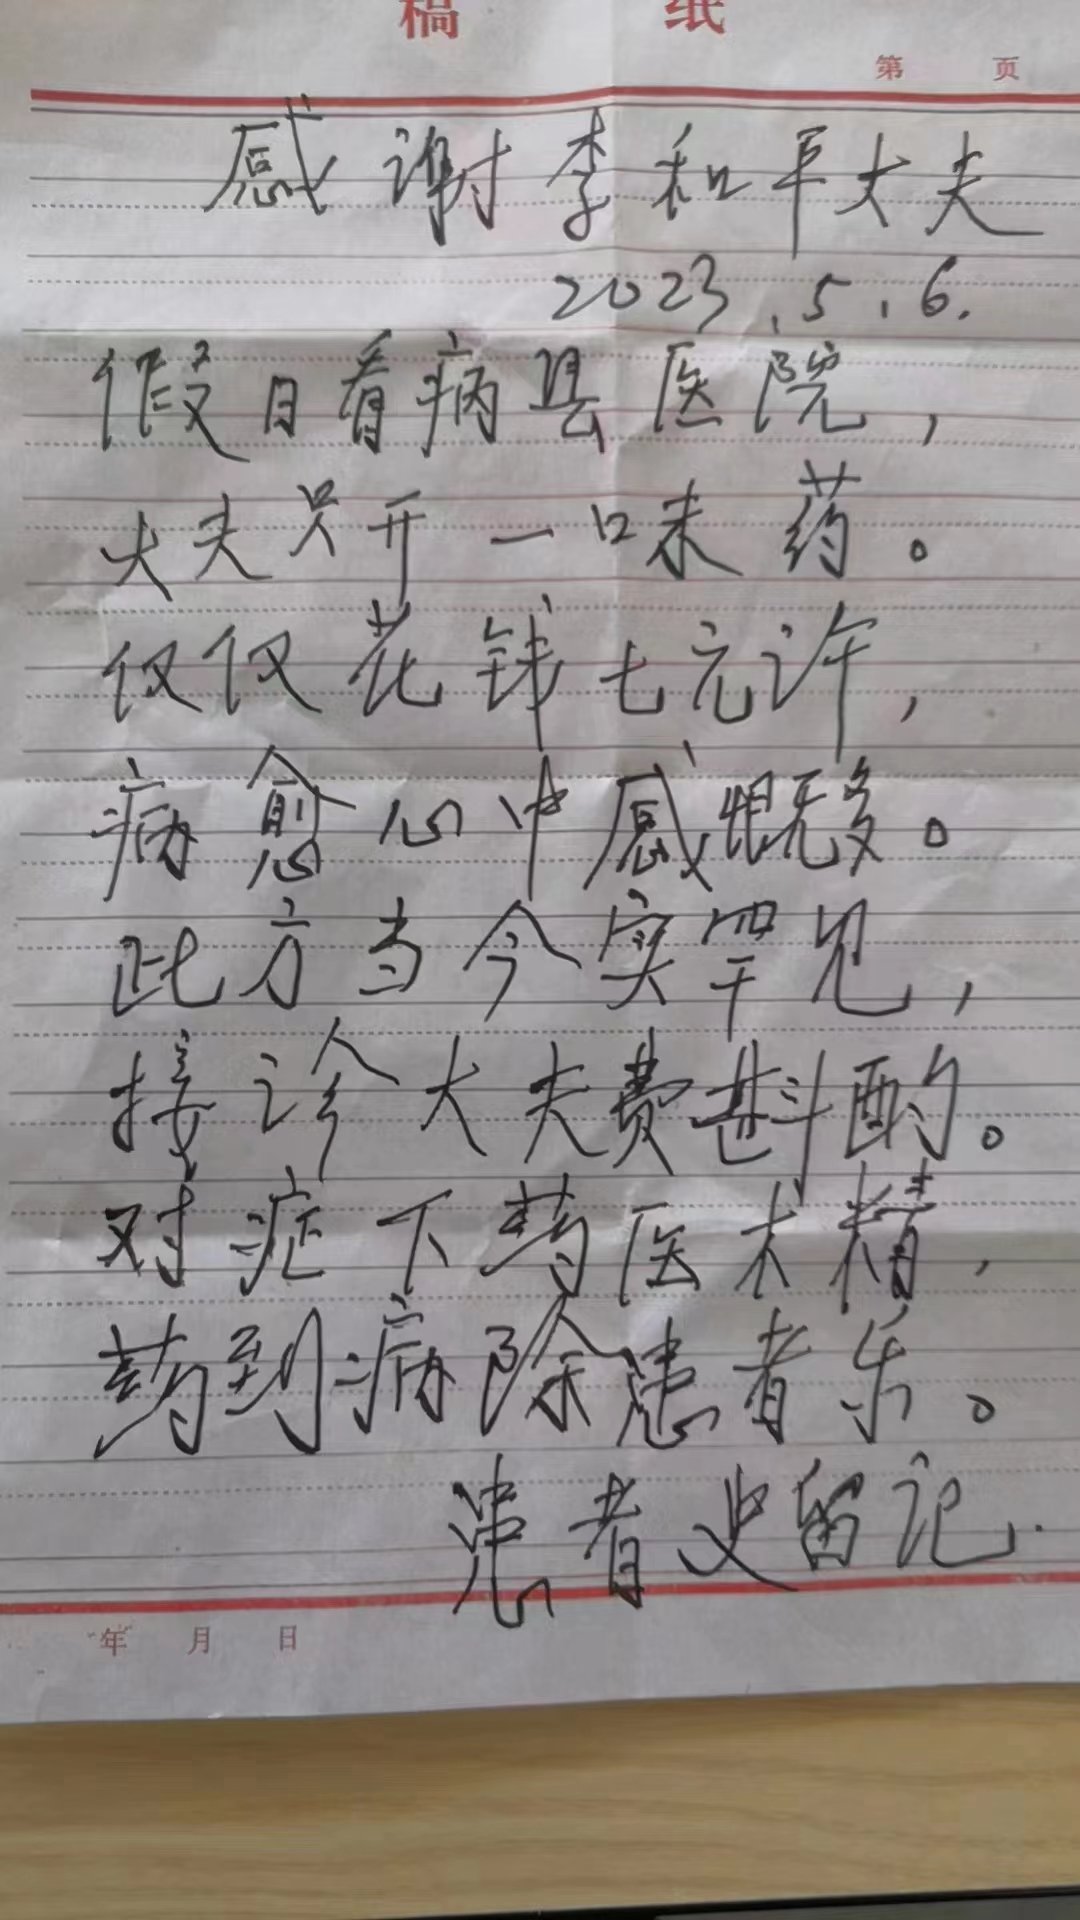 稿 纸
第 页
感谢李和平大夫
2023.5.6.
假日看病县医院，
大夫只开一味药。
仅仅花钱七元许，
病愈心中感慨多。
此方当今实罕见，
接诊大夫费斟酌。
对症下药医术精，
药到病除患者乐。
患者史留记.
年 月 日